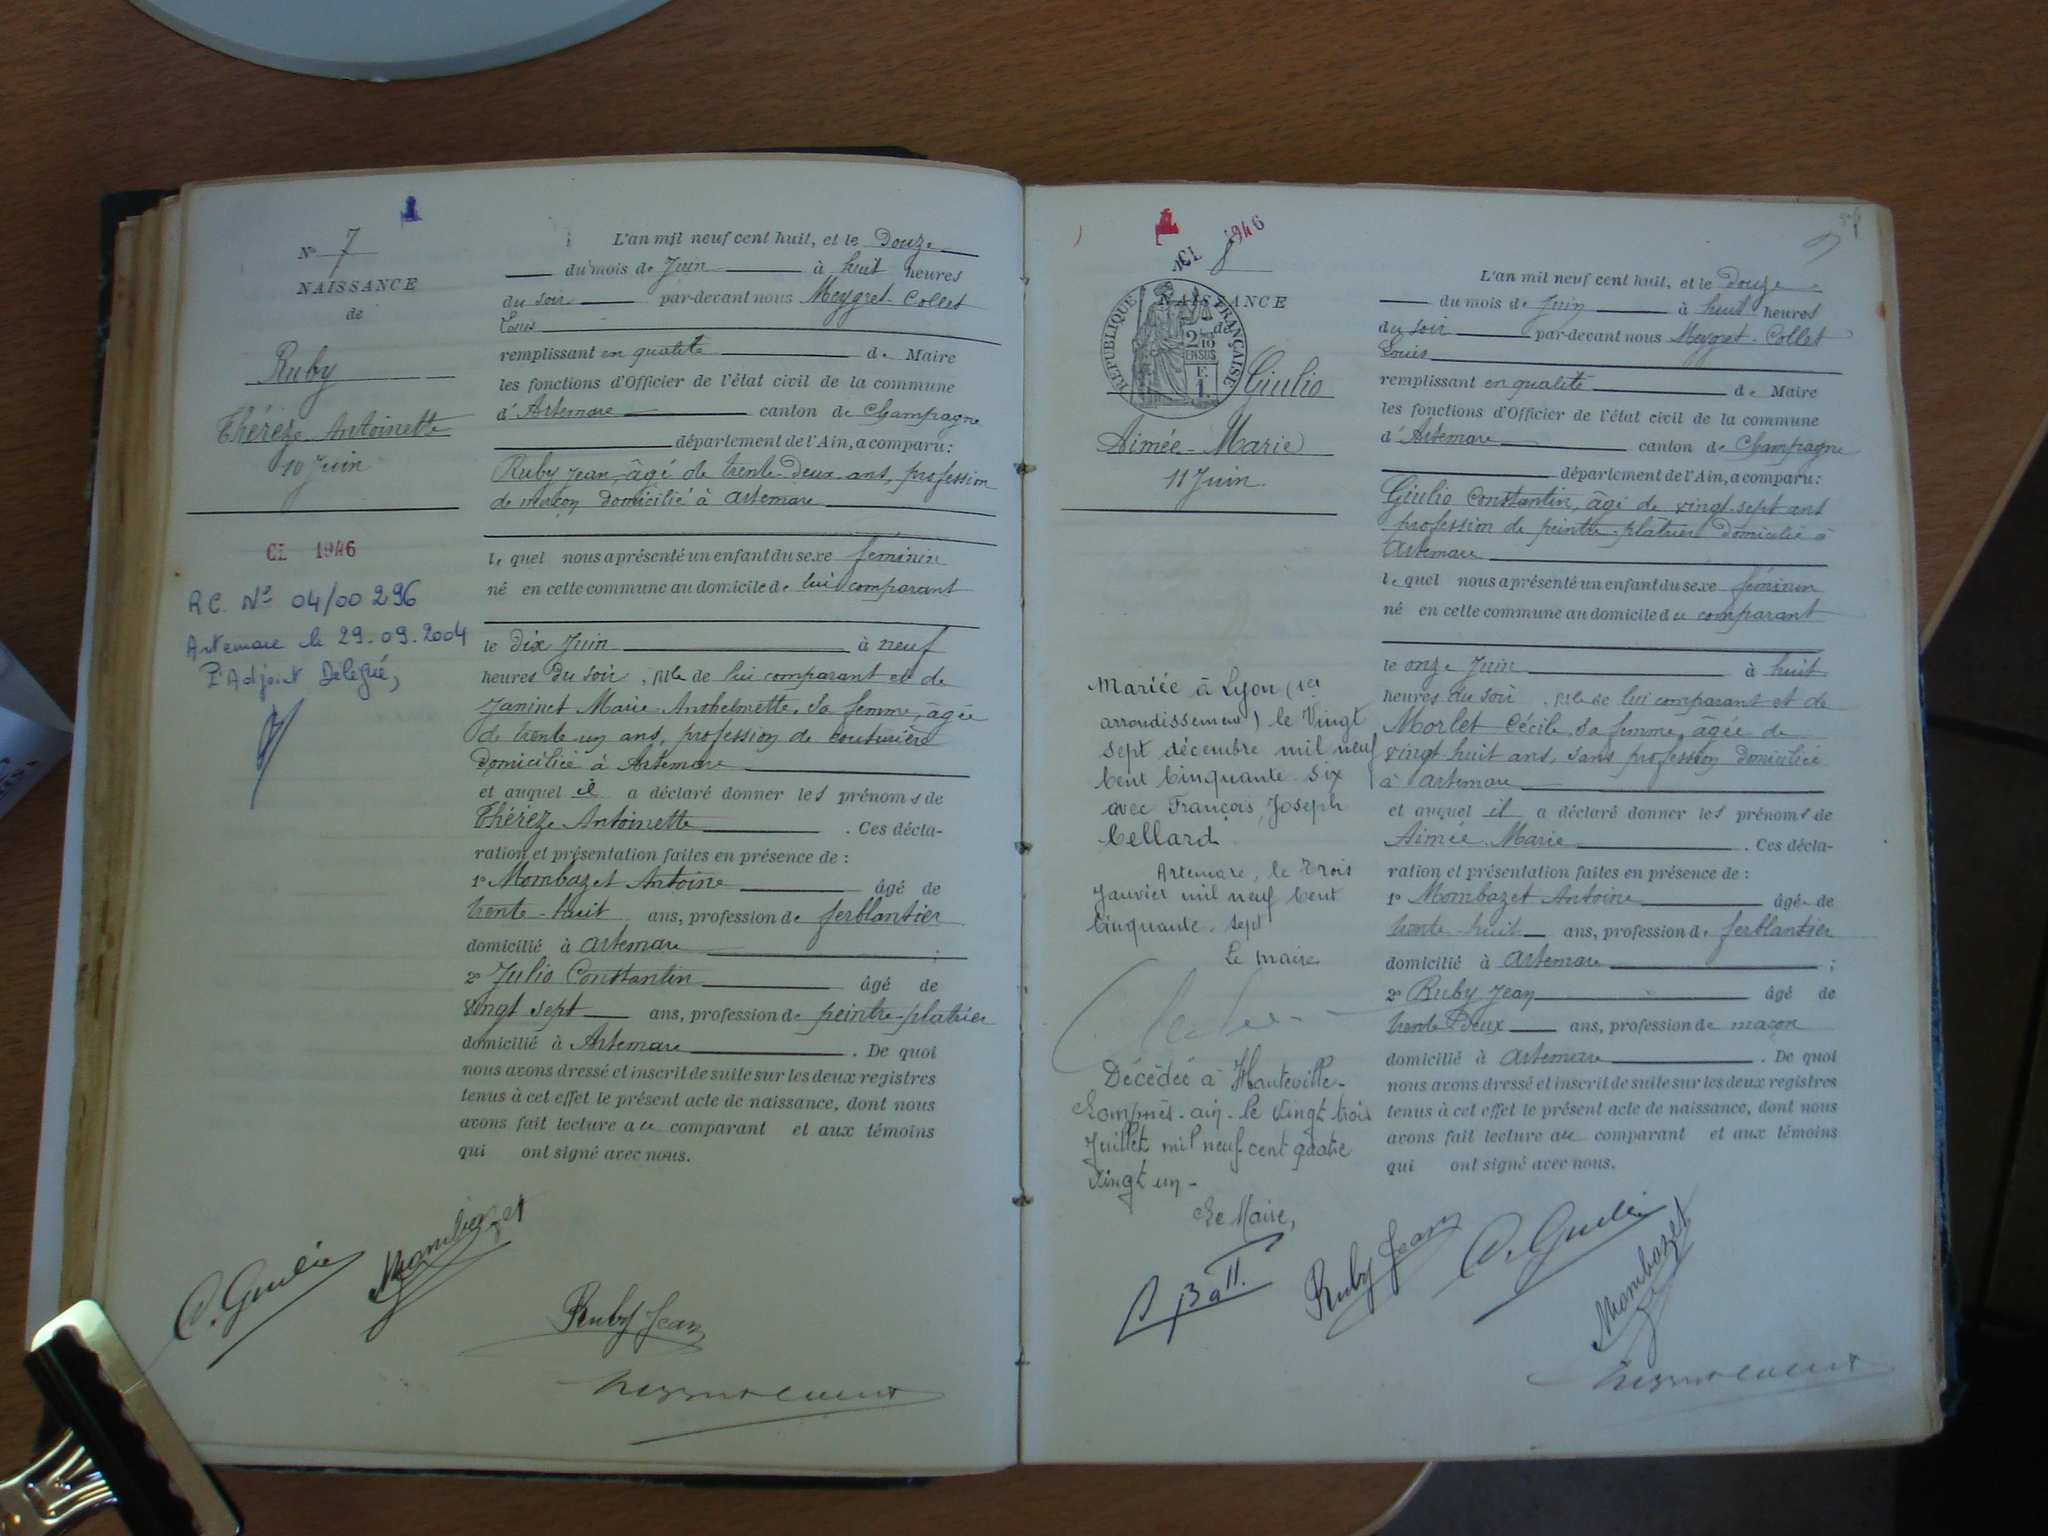 N° 7
NAISSANCE
de
Ruby
Thérèze Antoinette
10 Juin
CL 1946
R.C. N° 04/00 296
Artemare le 29.09.2004
L'Adjoint Délégué,
L'an mil neuf cent huit, et le Douze
du mois de Juin à huit heures
du soir par-devant nous Meygret-Collet
Louis
remplissant en qualité de Maire
les fonctions d'Officier de l'état civil de la commune
d'Artemare canton de Champagne
département de l'Ain, a comparu :
Ruby Jean, âgé de trente-deux ans, profession
de maçon domicilié à Artemare
lequel nous a présenté un enfant du sexe féminin
né en cette commune au domicile de lui comparant
le dix Juin à neuf
heures du soir, fille de lui comparant et de
Janinet Marie Anthelmette, sa femme, âgée
de trente-un ans, profession de couturière
domiciliée à Artemare
et auquel il a déclaré donner les prénoms de
Thérèze Antoinette. Ces décla-
ration et présentation faites en présence de :
1° Mombazet Antoine âgé de
trente-huit ans, profession de ferblantier
domicilié à Artemare ;
2° Julio Constantin âgé de
vingt sept ans, profession de peintre-plâtrier
domicilié à Artemare. De quoi
nous avons dressé et inscrit de suite sur les deux registres
tenus à cet effet le présent acte de naissance, dont nous
avons fait lecture au comparant et aux témoins
qui ont signé avec nous.
C. Giulio
Mombazet
Ruby Jean
CL 1946
8
NAISSANCE
de
RÉPUBLIQUE FRANÇAISE
2/10 EN SUS
F. 1.
Giulio
Aimée-Marie
11 Juin.
Mariée à Lyon (1er
arrondissement) le Vingt
sept décembre mil neuf
Cent Cinquante six
avec François, Joseph
Cellard.
Artemare, le trois
Janvier mil neuf Cent
Cinquante-sept
Le maire
Décédée à Hauteville-
Lompnès-ain-le vingt trois
Juillet mil neuf-cent quatre
vingt un-
Le Maire,
L'an mil neuf cent huit, et le Douze
du mois de Juin à huit heures
du soir par-devant nous Meygret-Collet
Louis
remplissant en qualité de Maire
les fonctions d'Officier de l'état civil de la commune
d'Artemare canton de Champagne
département de l'Ain, a comparu :
Giulio Constantin, âgé de vingt-sept ans
profession de peintre-platrier domicilié à
Artemare
lequel nous a présenté un enfant du sexe féminin
né en cette commune au domicile du comparant
le onze Juin à huit
heures du soir, fille de lui comparant et de
Morlet Cécile, sa femme, âgée de
vingt huit ans, sans profession domiciliée
à Artemare
et auquel il a déclaré donner les prénoms de
Aimée Marie. Ces décla-
ration et présentation faites en présence de :
1° Mombazet Antoine âgé de
trente-huit ans, profession de ferblantier
domicilié à Artemare ;
2° Ruby Jean âgé de
trente deux ans, profession de maçon
domicilié à Artemare. De quoi
nous avons dressé et inscrit de suite sur les deux registres
tenus à cet effet le présent acte de naissance, dont nous
avons fait lecture au comparant et aux témoins
qui ont signé avec nous.
Ruby Jean
C. Giulio
Mombazet